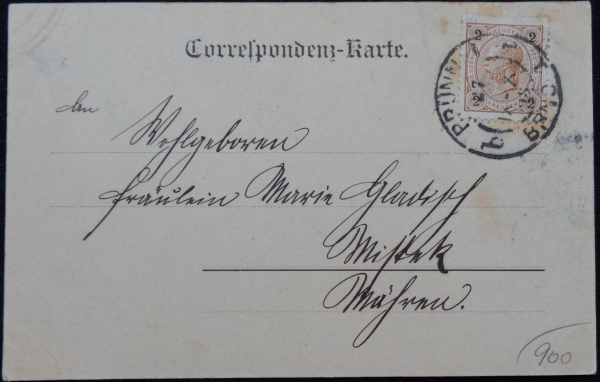 Correspondenz-Karte.
2 2
2 2
BRÜNN
BRNO
An
Wohlgeboren
Fräulein Marie Gladisch
Mistek
Mähren.
900